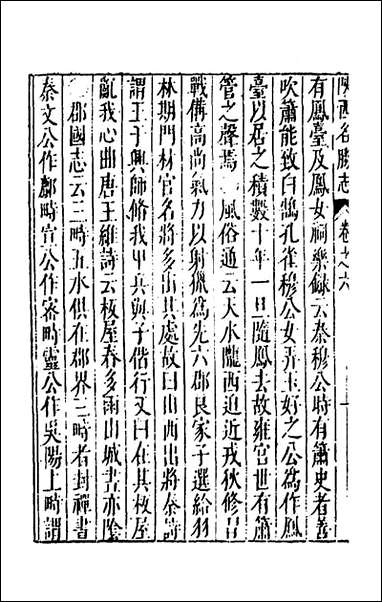 陝西名勝志 卷之六
有鳳臺及鳳女祠樂錄云秦穆公時有蕭史者善
吹簫能致白鵠孔雀穆公女弄玉好之公爲作鳳
臺以居之積數十年一旦隨鳳去故雍宮世有簫
管之聲焉 風俗通云天水隴西迫近戎狄修習
戰備高尚氣力以射獵爲先六郡良家子選給羽
林期門材官名將多出其處故曰山西出將秦詩
謂王于興師脩我甲兵與子偕行又曰在其板屋
亂我心曲唐王維詩云板屋春多雨山城晝亦陰
郡國志云三畤五水俱在郡界三畤者封禪書
秦文公作鄜畤宣公作密畤靈公作吳陽上畤謂